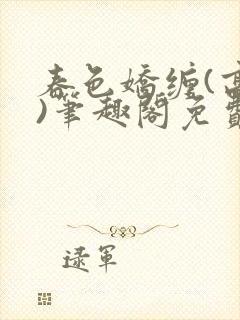 春色嬌纏(高
)筆趣閣免費
逯軍